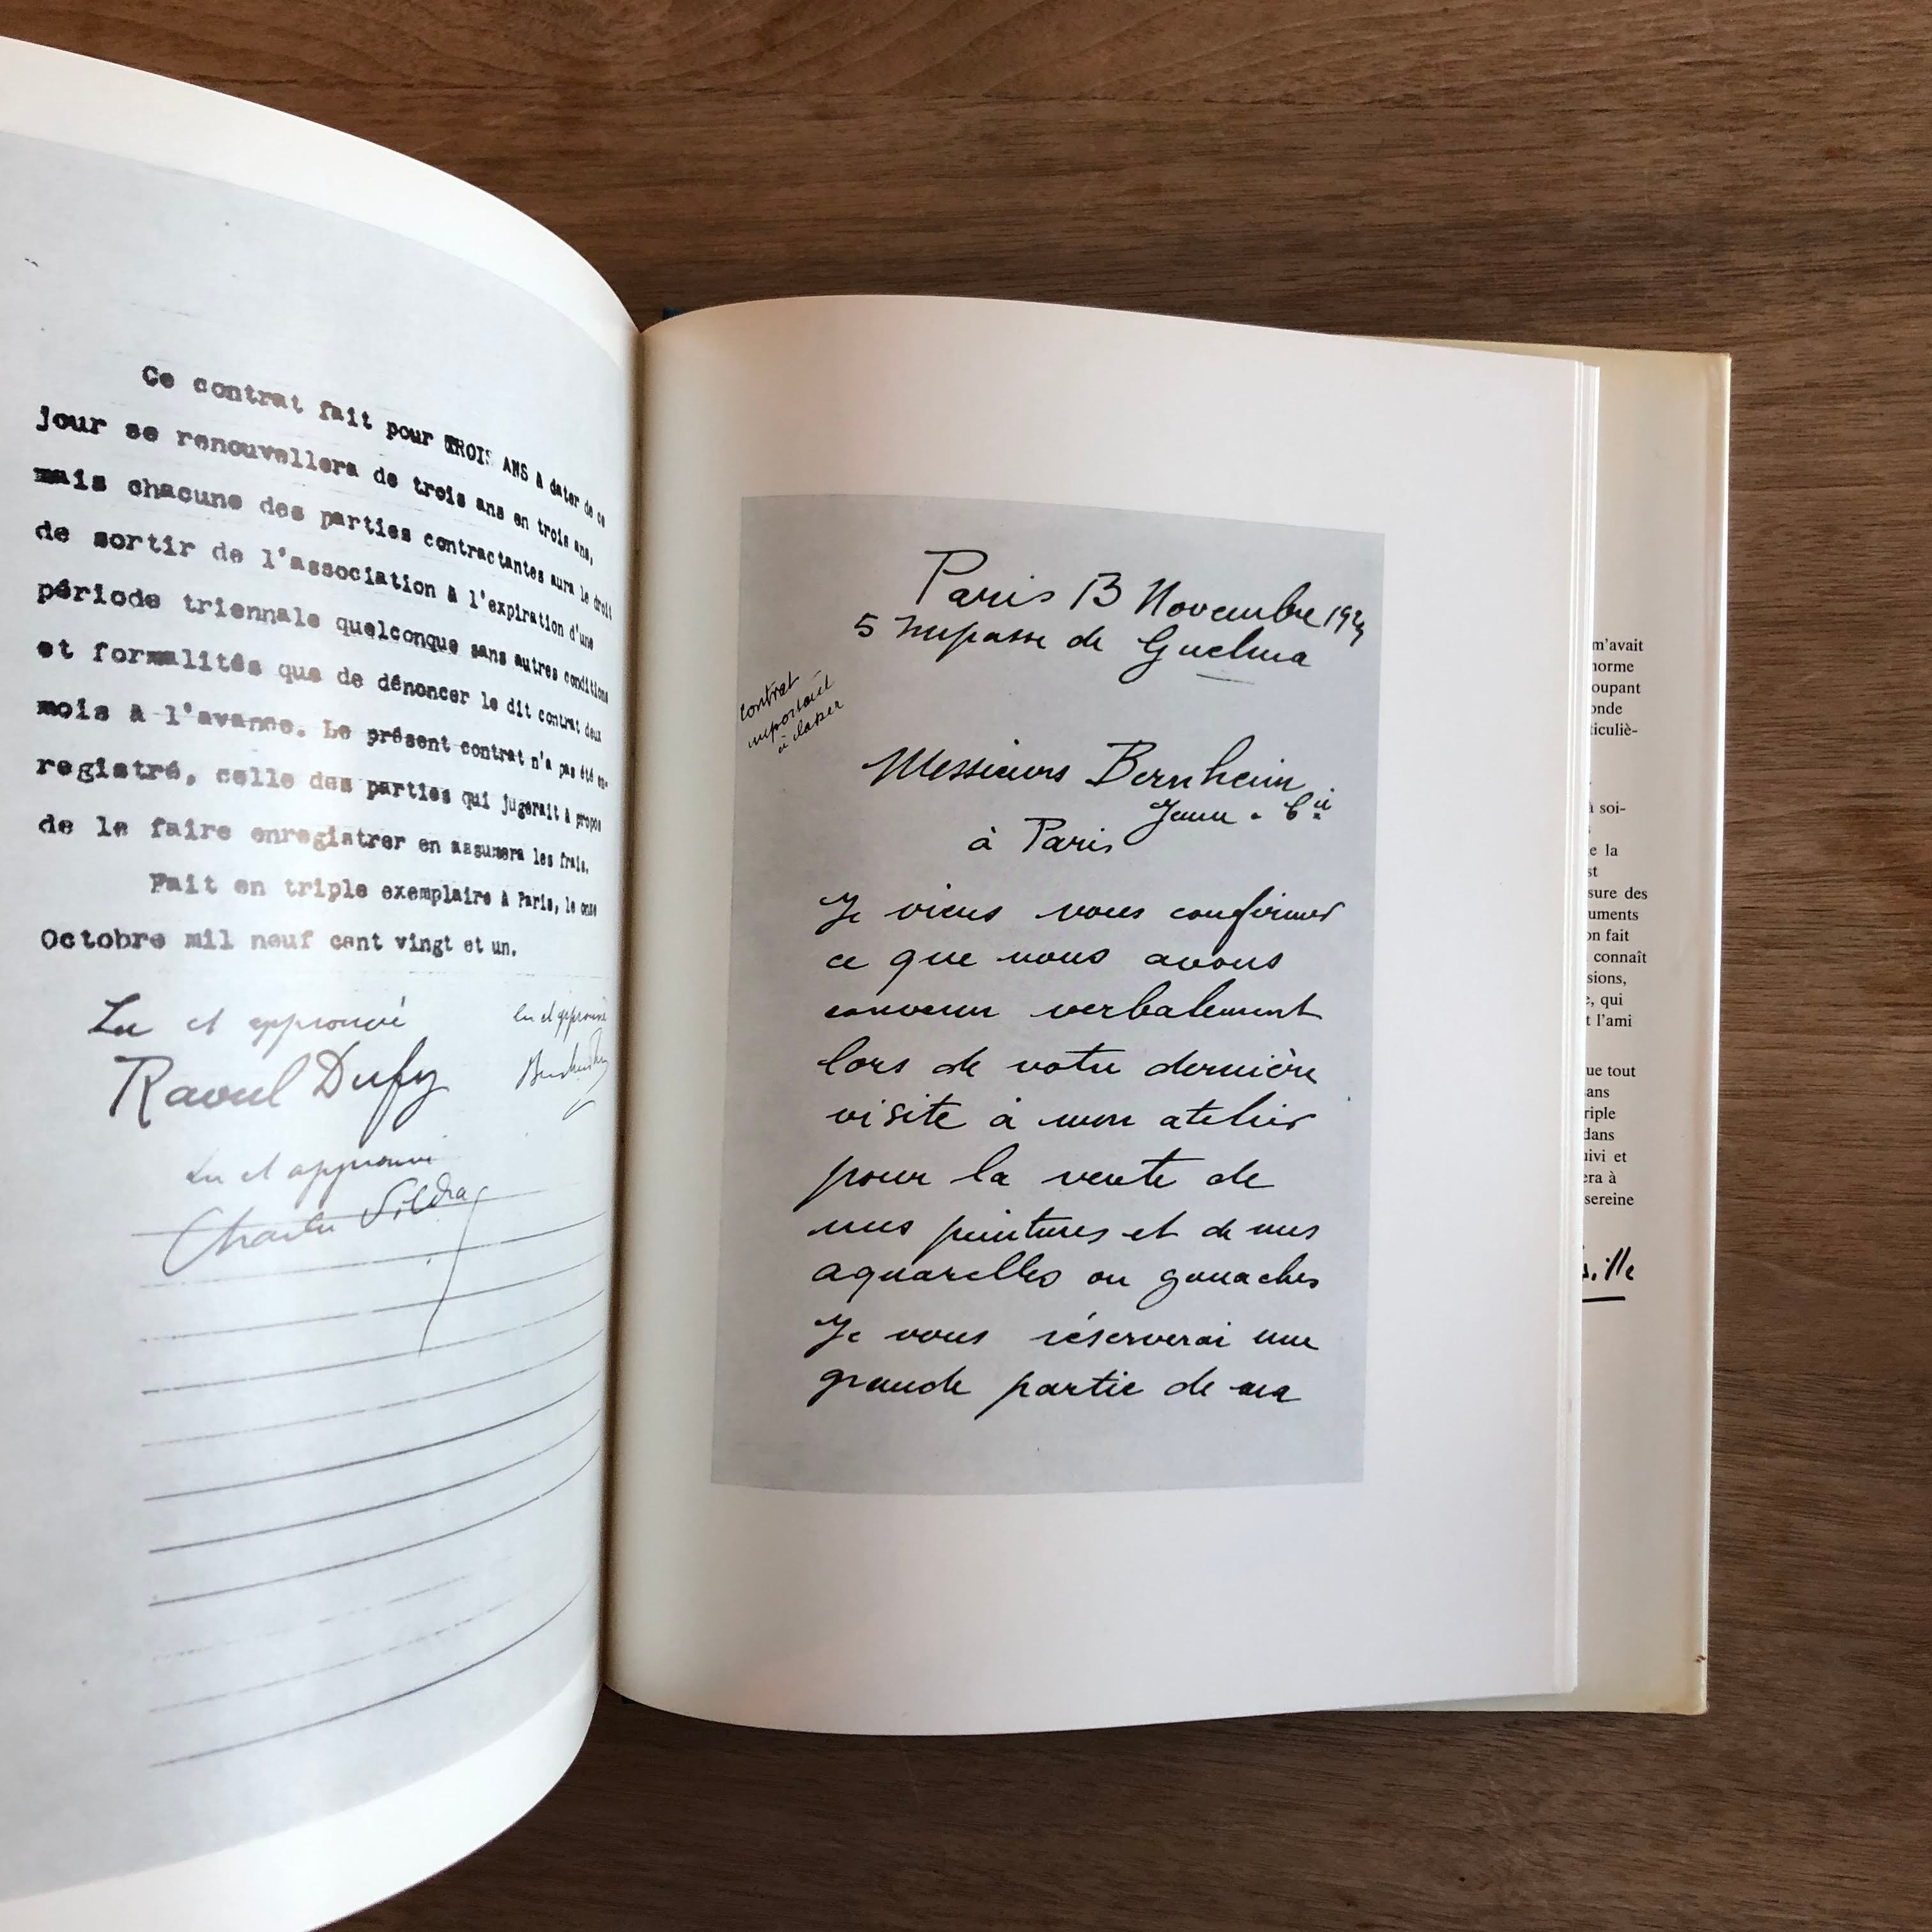 Ce contrat fait pour TROIS ANS à dater de ce
jour se renouvellera de trois ans en trois ans,
mais chacune des parties contractantes aura le droit
de sortir de l'association à l'expiration d'une
période triennale quelconque sans autres conditions
et formalités que de dénoncer le dit contrat deux
mois à l'avance. Le présent contrat n'a pas été en-
registré, celle des parties qui jugerait à propos
de le faire enregistrer en assumera les frais.
Fait en triple exemplaire à Paris, le onze
Octobre mil neuf cent vingt et un.
Lu et approuvé
Raoul Dufy
lu et approuvé
Lu et approuvé
Charles Vildrac
Paris 13 Novembre
5 Impasse de Guelma
contrat
important
à classer
Messieurs Bernheim
Jeune & Cie
à Paris
Je viens vous confirmer
ce que nous avons
convenu verbalement
lors de votre dernière
visite à mon atelier
pour la vente de
mes peintures et de mes
aquarelles ou gouaches
Je vous réserverai une
grande partie de ma
m'avait
norme
oupant
onde
iculiè-
à soi-
e la
st
sure des
uments
on fait
connaît
sions,
e, qui
t l'ami
ue tout
ans
riple
dans
uivi et
era à
sereine
ille